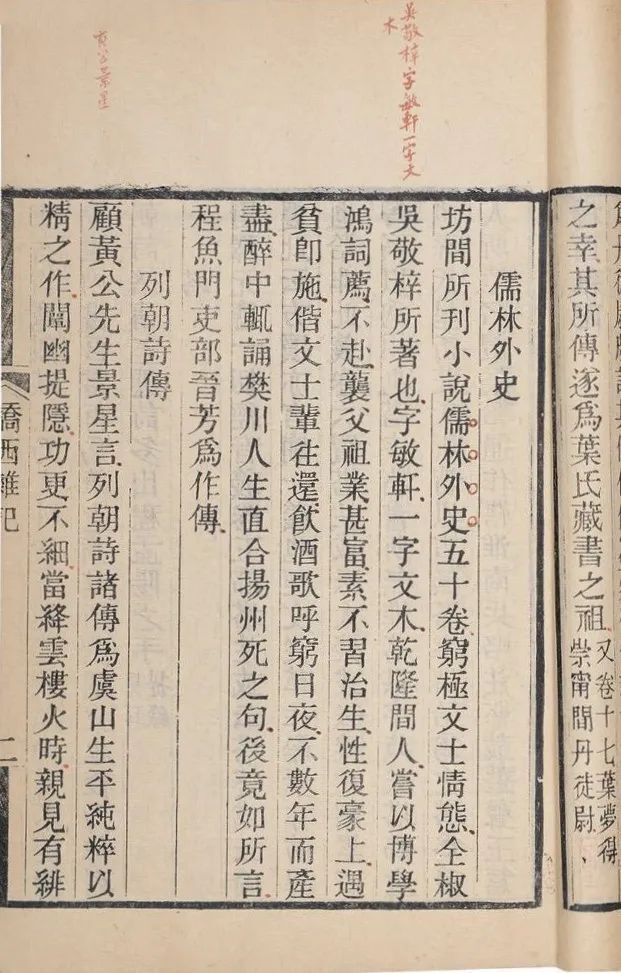 之幸其所傳遂爲葉氏藏書之祖
又卷十七葉夢得
崇甯間丹徒尉、
吳敬梓字敏軒一字文
木
儒林外史
坊間所刊小說儒林外史五十卷窮極文士情態全椒
吳敬梓所著也字敏軒一字文木乾隆間人嘗以博學
鴻詞薦不赴襲父祖業甚富素不習治生性復豪上遇
貧卽施偕文士輩往還飮酒歌呼窮日夜不數年而產
盡醉中輒誦樊川人生直合揚州死之句後竟如所言
程魚門吏部晉芳爲作傳
列朝詩傳
黃公景星
顧黃公先生景星言列朝詩諸傳爲虞山生平純粹以
精之作闡幽提隱功更不細當絳雲樓火時親見有緋
橋西雜記
二